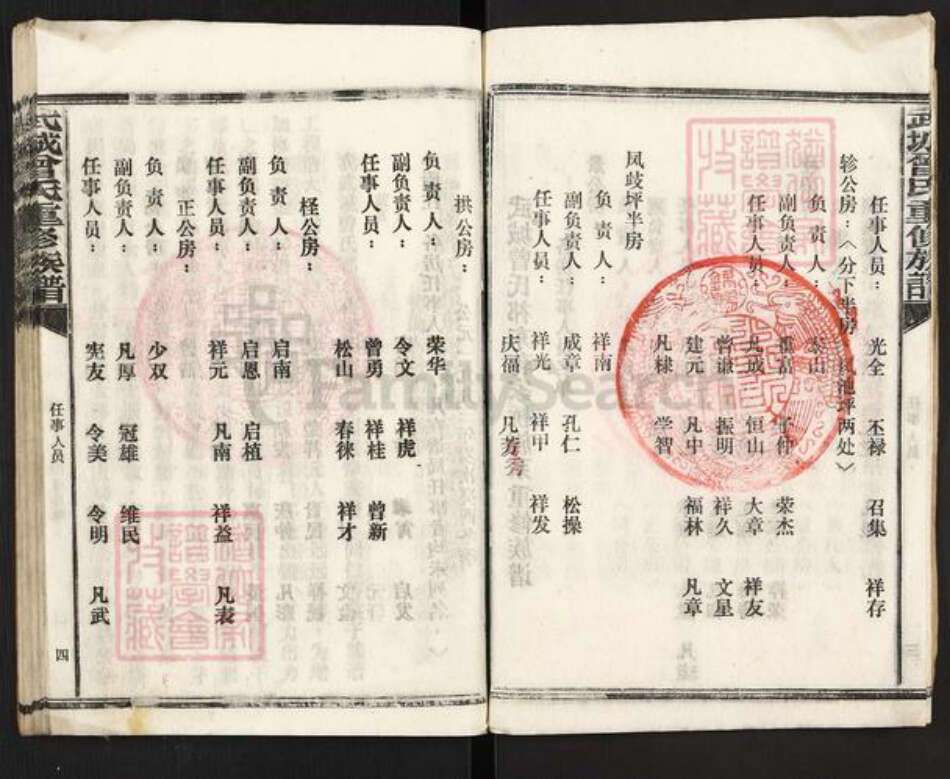 武城曾氏重修族谱
任事人员： 光全 丕禄 召集 祥存
轸公房：（分下半房 池坪两处）
负责人： 山
副负责人： 仲 荣杰
任事人员： 凡成 恒山 大章 祥友
曾谦 振明 祥久 文星
建元 凡中 福林 凡章
凡棣 学智
凤歧坪半房
负责人： 祥南
副负责人： 成章 孔仁 松操
任事人员： 祥光 祥甲 祥发
庆福 凡芳
拱公房：
负责人： 荣华
副负责人： 令文 祥虎
任事人员： 曾勇 祥桂 曾新
松山 春徕 祥才
柽公房：
负责人： 启南
副负责人： 启恩 启植
任事人员： 祥元 凡南 祥益 凡表
正公房：
负责人： 少双
副负责人： 凡厚 冠雄 维民
任事人员： 宪友 令美 令明 凡武
武城曾氏重修族谱
任事人员
四
FamilySearch